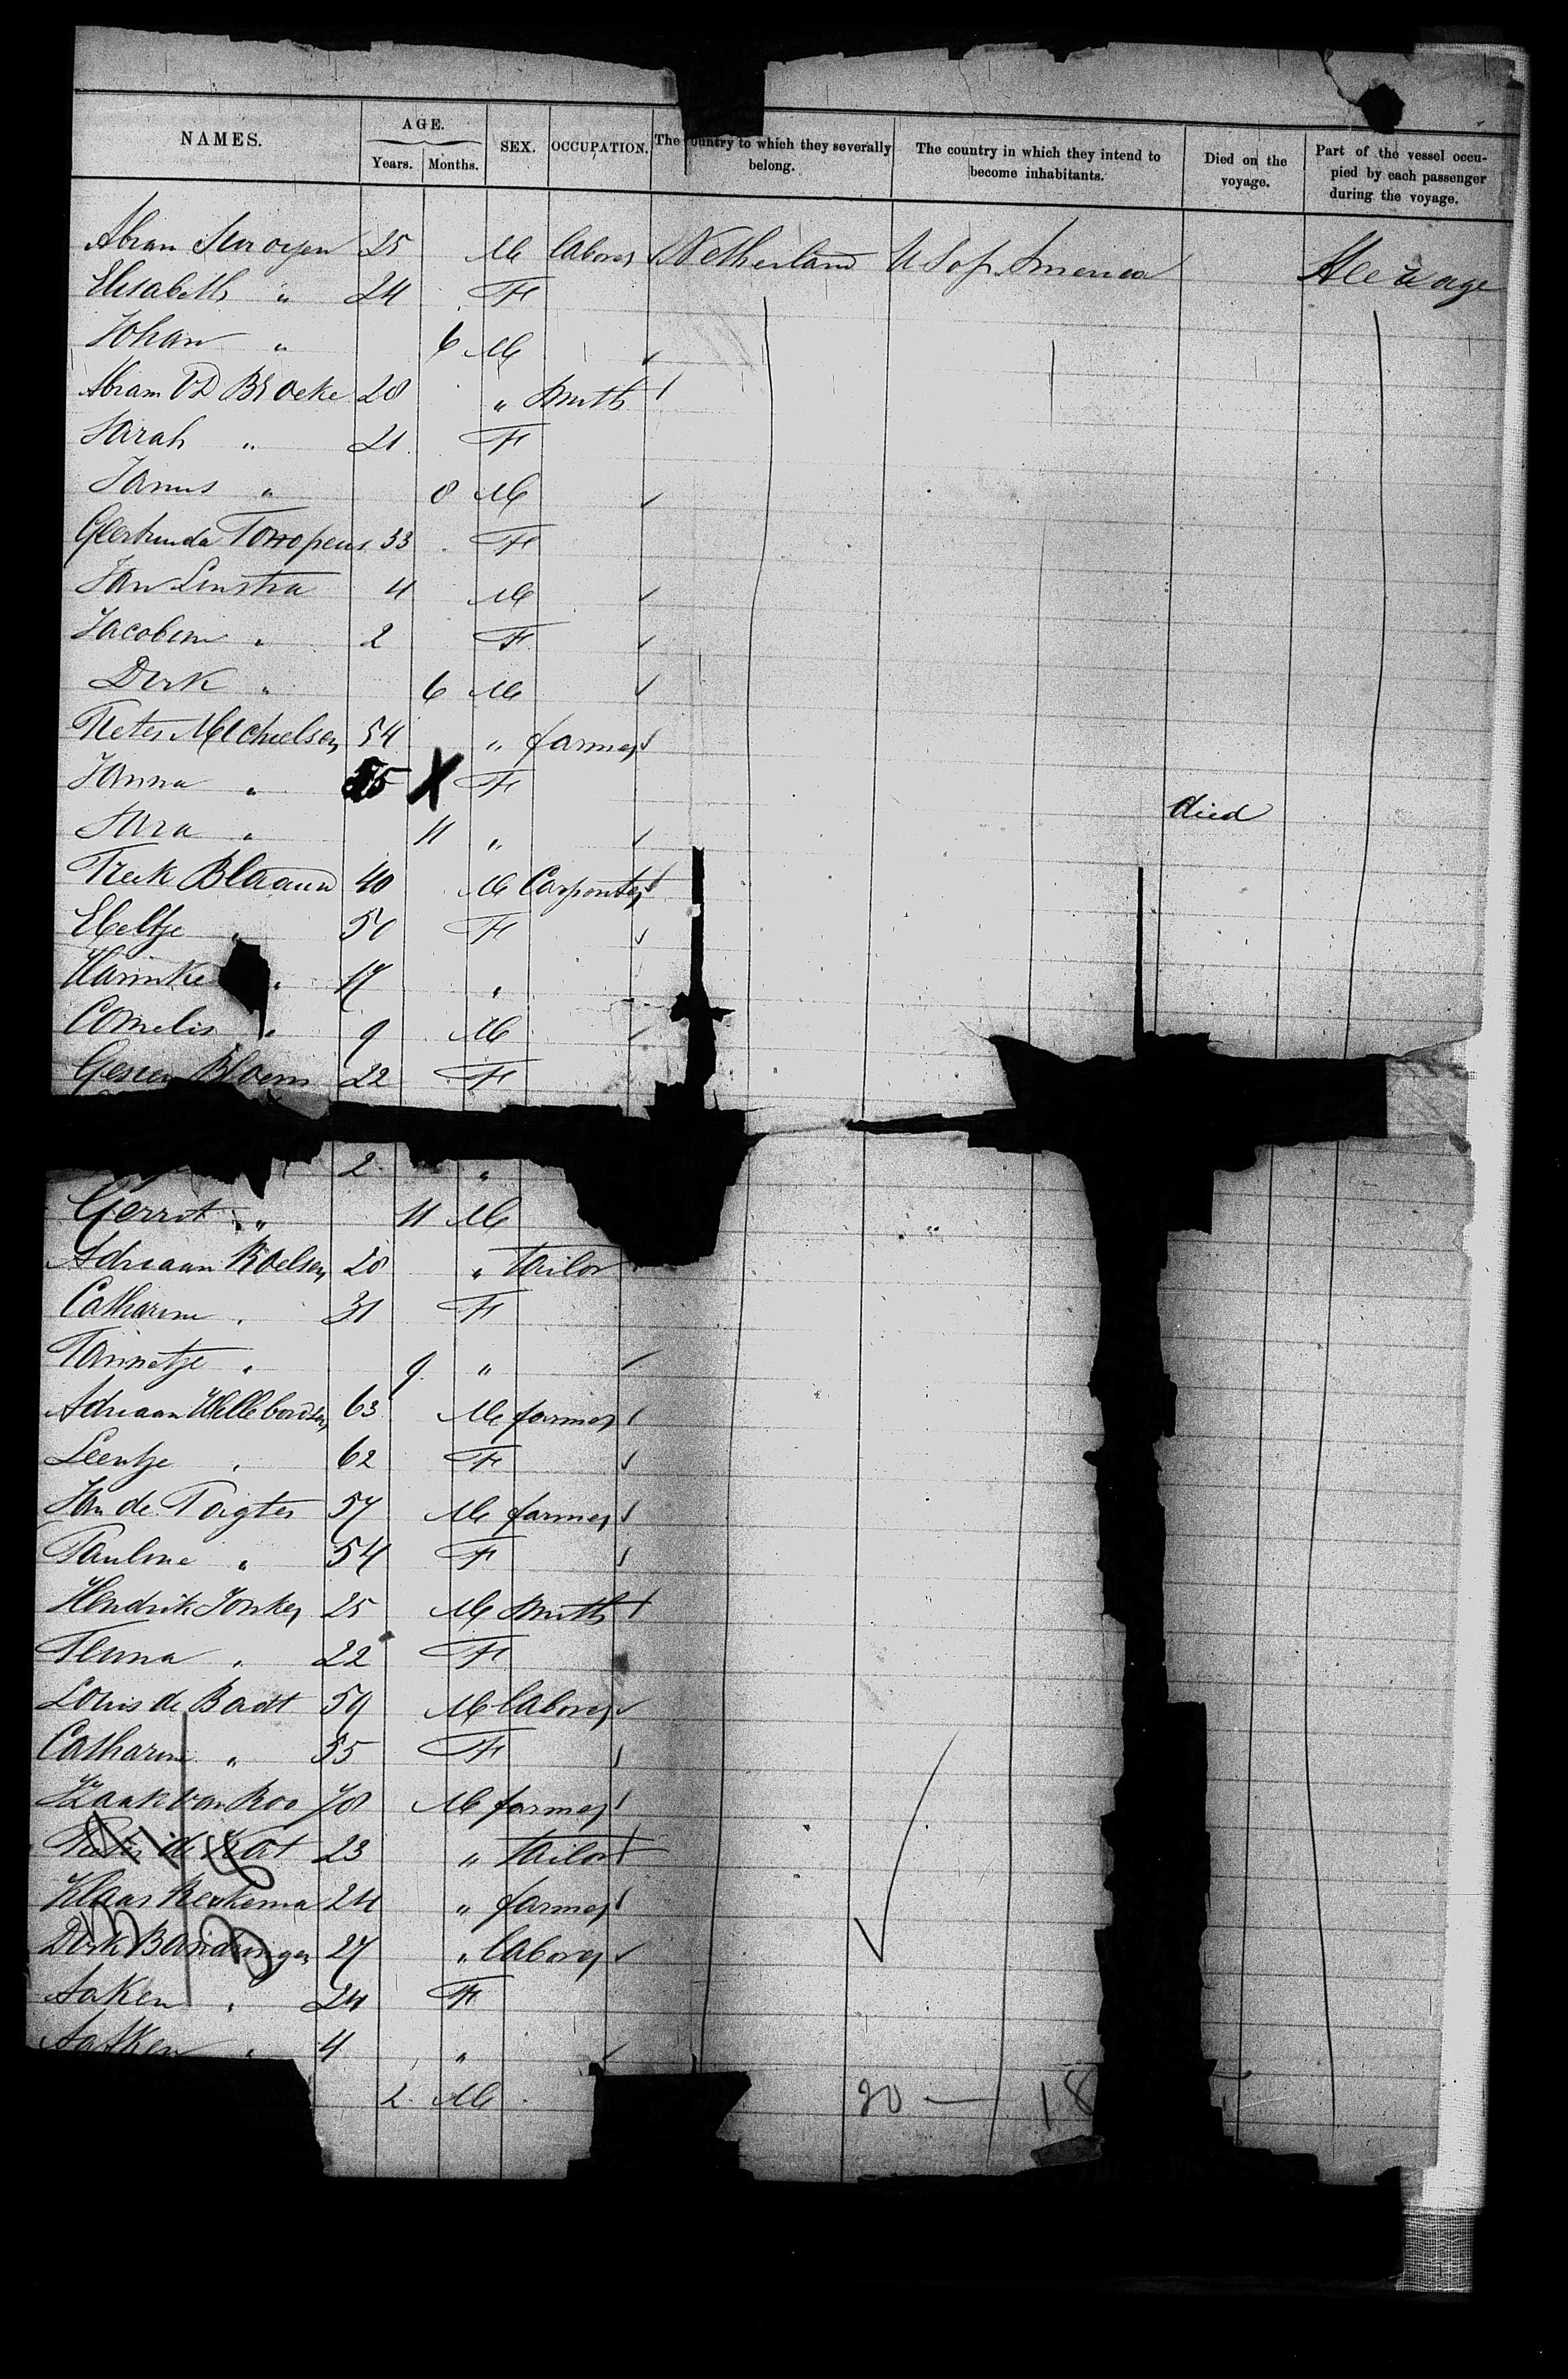 NAMES. AGE. Years. Months. SEX. OCCUPATION. The country to which they severally belong. The country in which they intend to become inhabitants. Died on the voyage. Part of the vessel occupied by each passenger during the voyage.
Abram 25 M laborer Netherland U S of America Steerage
Elisabeth " 24 F
Johan " 6 M
Abram VD Broeke 28 " Smith
Sarah " 21 F
Janus " 8 M
Geertruida 33 F
Jan Linstra 4 M
Jacobem " 2 F
Dirk " 6 M
Pieter Michielsen 54 " farmer
Janna " F died
Sara " 11 "
Freek Blaauw 40 M Carpenter
Eltje " 50 F
Harmke " 17 "
Cornelis " 9 M
Bloem 22 F
2 "
Gerrit " 11 M
Adriaan Roelsen 28 " tailor
Catharine " 31 F
Tannetje " 9 "
Adriaan Willeboordsen 63 M farmer
Leentje " 62 F
Jan de Voigter 57 M farmer
Pauline " 54 F
Hendrik Jonker 25 M Smith
Teuna " 22 F
Louis de Badt 59 M laborer
Catharine " 55 F
Izaak van Roo 78 M farmer
Pieter de 23 " tailor
Klaas Reukema 24 " farmer
Dirk 27 " laborer
Aaken " 24 F
Aafken " 4 "
2 M
20 — 18